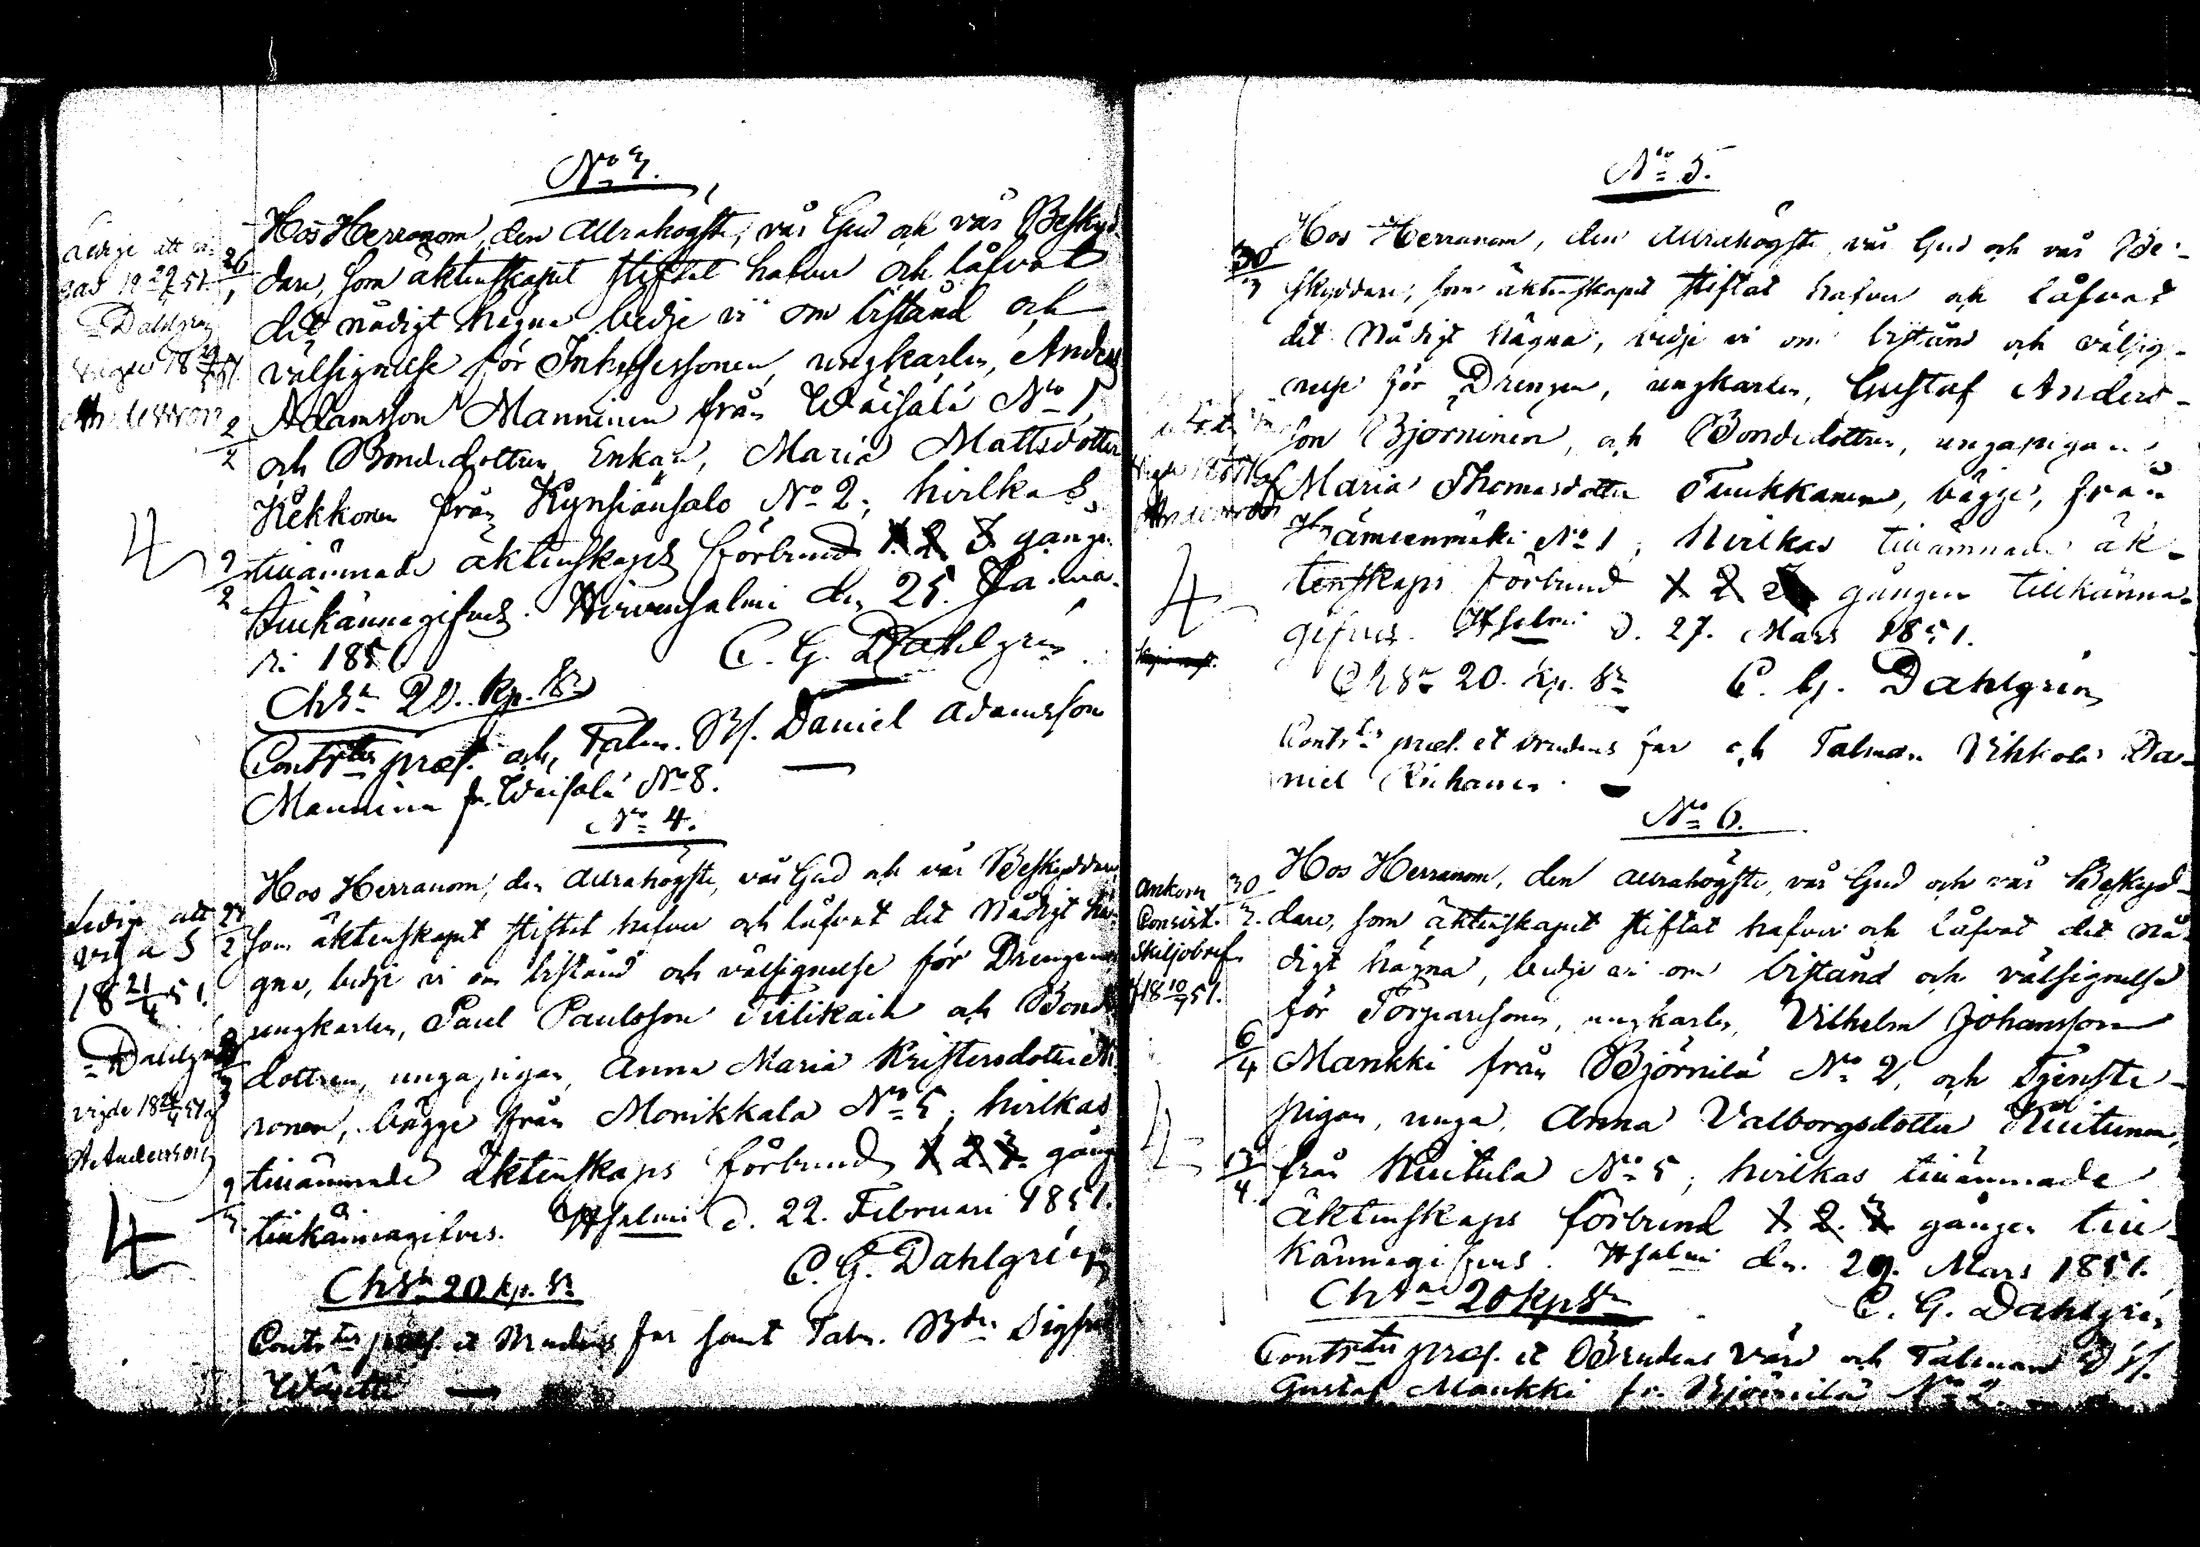 No 3.
Hos Herranom, den Allrahögste, vår Gud och vår Beskyd
dare, som äktenskapet stiftat hafver och låfvat
det nådigt hägna bedje vi om bistånd och
välsignelse för Inhysessonen, ungkarlen, Anders
Adamsson Manninen från Wäisälä No 1,
och Bondedottren Enkan, Maria Mattsdotter
Kekkonen från Kynsiänsalo No 2; hvilkas
tillämnade äktenskaps förbund 1. 2. 3. gången
tillkännagifves. Hirvensalmi den 25. Janua-
ri 1851
C. G. Dahlgren
Chsn 20. kp. Sr
Contrter præs. och Talm. Bd. Daniel Adamsson
Manninen fr. Wäisälä No 8.
26
1
2
2
9
2
Ledige att vi-
gas 18 29 51.
Dahlgren
Vigde 18
Anderson
4
No 4.
Hos Herranom, den Allrahögste, vår Gud och vår Beskyddare
som äktenskapet stiftat hafver och låfvat det Nådigt hä-
gna, bedje vi om bistånd och välsignelse för Drengen
ungkarlen, Paul Paulsson Tiilikain och Bonde
dottren, ungapigan, Anna Maria Kristersdotter
ronen, bägge från Monikkala No 5; hvilkas
tillämnade äktenskaps förbund 1. 2. 3. gång
tillkännagifves. Hsalmi d. 22. Februari 1851.
C. G. Dahlgren
Chsn 20 kp. Sr
Contrter præs. et Brudens far samt Talm. Bdn Sigfrid
Ledige att
vigas
18 21/4 51.
Dahlgren
vigde 18 51 af
A Anderson
4
No 5.
Hos Herranom, den Allrahögste vår Gud och vår Be-
skyddare, som äktenskapet stiftat hafver och låfvat
det Nådigt hägna, bedje vi om bistånd och välsig-
nelse för Drengen, ungkarlen, Gustaf Anders-
son Björninen, och Bondedottren, ungapigan
Maria Thomasdotter Tuukkanen, bägge, från
Hämeenmäki No 1; hvilkas tillämnade äk-
tenskaps förbund 1. 2. 3. gången tillkänna-
gifves. Hsalmi d. 27. Mars 1851.
Chsn 20. kp. Sr C. G. Dahlgren
Contrter præs. et brudens far och Talman Da-
niel
30
3
Anderson
4
No 6.
Hos Herranom, den allrahögste, vår Gud och vår Beskyd-
dare, som äktenskapet stiftat hafver och låfvat det nå-
digt hägna, bedje vi om bistånd och välsignelse
för Torparesonen, ungkarlen, Vilhelm Johansson
Mankki från Björnilä No 2, och Tjenste-
pigan, unga, Anna Valborgsdotter Kuitunen,
från Kuitula No 5; hvilkas tillämnade
äktenskaps förbund 1. 2. 3. gången till
kännagifves. Hsalmi den 29. Mars 1851.
Chsn 20 kp Sr
C. G. Dahlgren
Contrter præs. et Brudens vård och Talmand Bd.
Gustaf Mankki fr. Björnilä No 2.
Ankom
Consist.
Skiljobref
18 10 51.
30
3.
6
4
13
4.
4